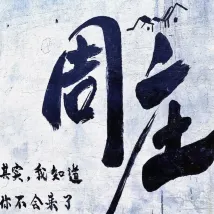 周庄
其实,我知道
你不会来了